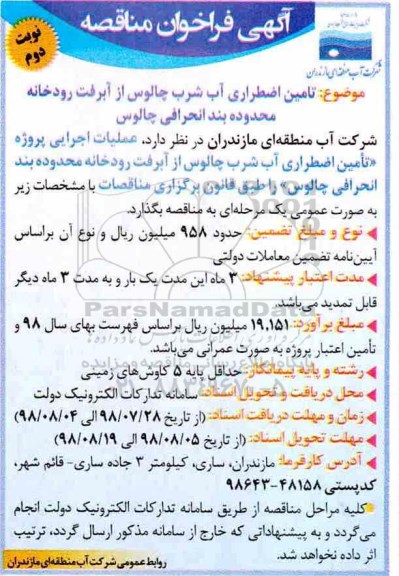 آگهی فراخوان مناقصه
نوبت
دوم
شرکت آب منطقه‌ای مازندران
موضوع: تامین اضطراری آب شرب چالوس از آبرفت رودخانه
محدوده بند انحرافی چالوس
شرکت آب منطقه‌ای مازندران در نظر دارد، عملیات اجرایی پروژه
«تأمین اضطراری آب شرب چالوس از آبرفت رودخانه محدوده بند
انحرافی چالوس» را طبق قانون برگزاری مناقصات با مشخصات زیر
به صورت عمومی یک مرحله‌ای به مناقصه بگذارد.
نوع و مبلغ تضمین: حدود ۹۵۸ میلیون ریال و نوع آن براساس
آیین‌نامه تضمین معاملات دولتی
مدت اعتبار پیشنهاد: ۳ ماه این مدت یک بار و به مدت ۳ ماه دیگر
قابل تمدید می‌باشد.
مبلغ برآورد: ۱۹,۱۵۱ میلیون ریال براساس فهرست بهای سال ۹۸ و
تأمین اعتبار پروژه به صورت عمرانی می‌باشد.
رشته و پایه پیمانکار: حداقل پایه ۵ کاوش‌های زمینی
محل دریافت و تحویل اسناد: سامانه تدارکات الکترونیک دولت
زمان و مهلت دریافت اسناد: (از تاریخ ۹۸/۰۷/۲۸ الی ۹۸/۰۸/۰۴)
مهلت تحویل اسناد: (از تاریخ ۹۸/۰۸/۰۵ الی ۹۸/۰۸/۱۹)
آدرس کارفرما: مازندران، ساری، کیلومتر ۳ جاده ساری- قائم شهر،
کدپستی ۴۸۱۵۸-۹۸۶۴۳
کلیه مراحل مناقصه از طریق سامانه تدارکات الکترونیک دولت انجام
می‌گردد و به پیشنهاداتی که خارج از سامانه مذکور ارسال گردد، ترتیب
اثر داده نخواهد شد.
روابط عمومی شرکت آب منطقه‌ای مازندران
ParsNamadData